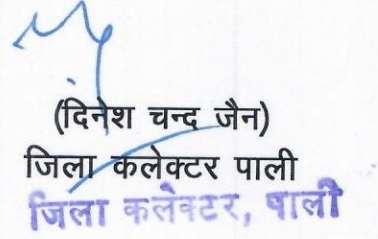 (दिनेश चन्द जैन)
जिला कलेक्टर पाली
जिला कलेक्टर, पाली